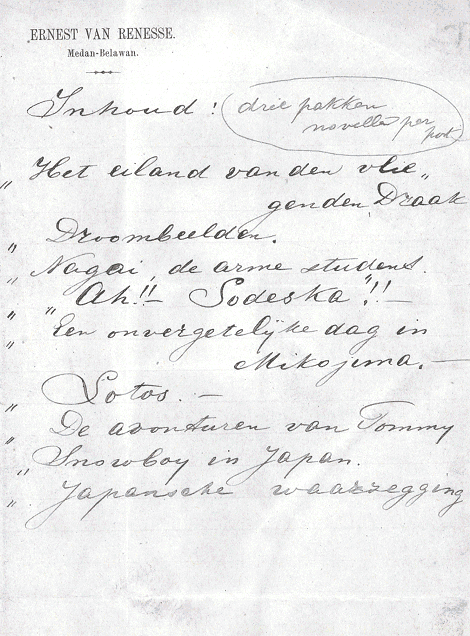 ERNEST VAN RENESSE.
Medan-Belawan.
Inhoud: drie pakken
novellen per
post
„ Het eiland van den vlie„
genden Draak
„ Droombeelden.
„ Nagai, de arme student.
„ „Ah!! Sodeska"!! —
„ Een onvergetelijke dag in
Mikojima. —
„ Lotos. —
„ De avonturen van Tommy
„ Snowboy in Japan.
„ Japansche waarzegging